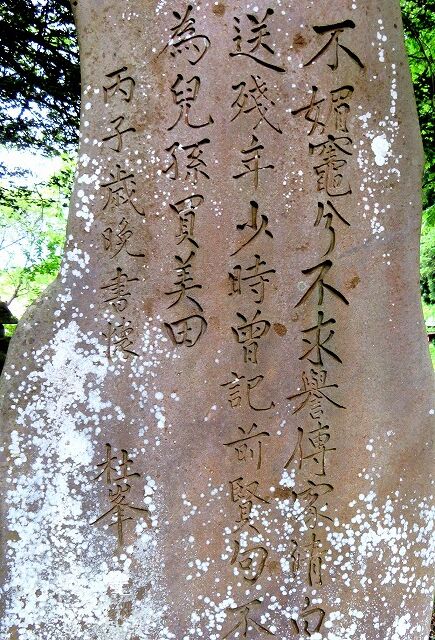 不媚竈兮不求譽傳家清白
送殘年少時曾記前賢句不
為兒孫買美田
丙子歲晚書懷 桂峯